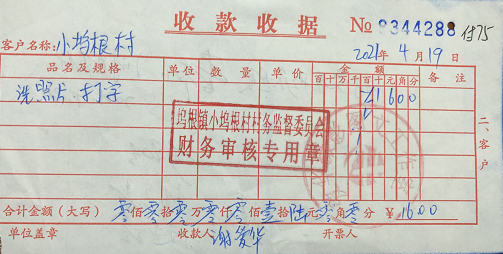 收款收据 № 9344288 付75
客户名称:小坞根村 2021年4月19日
品名及规格 单位 数量 单价 金额 备注
百十万千百十元角分
洗照片 打字 1600
坞根镇小坞根村村务监督委员会
财务审核专用章
二、客户
合计金额(大写) 零佰零拾零万零仟零佰壹拾陆元零角零分 ¥1600
单位盖章 收款人 谢爱华 开票人